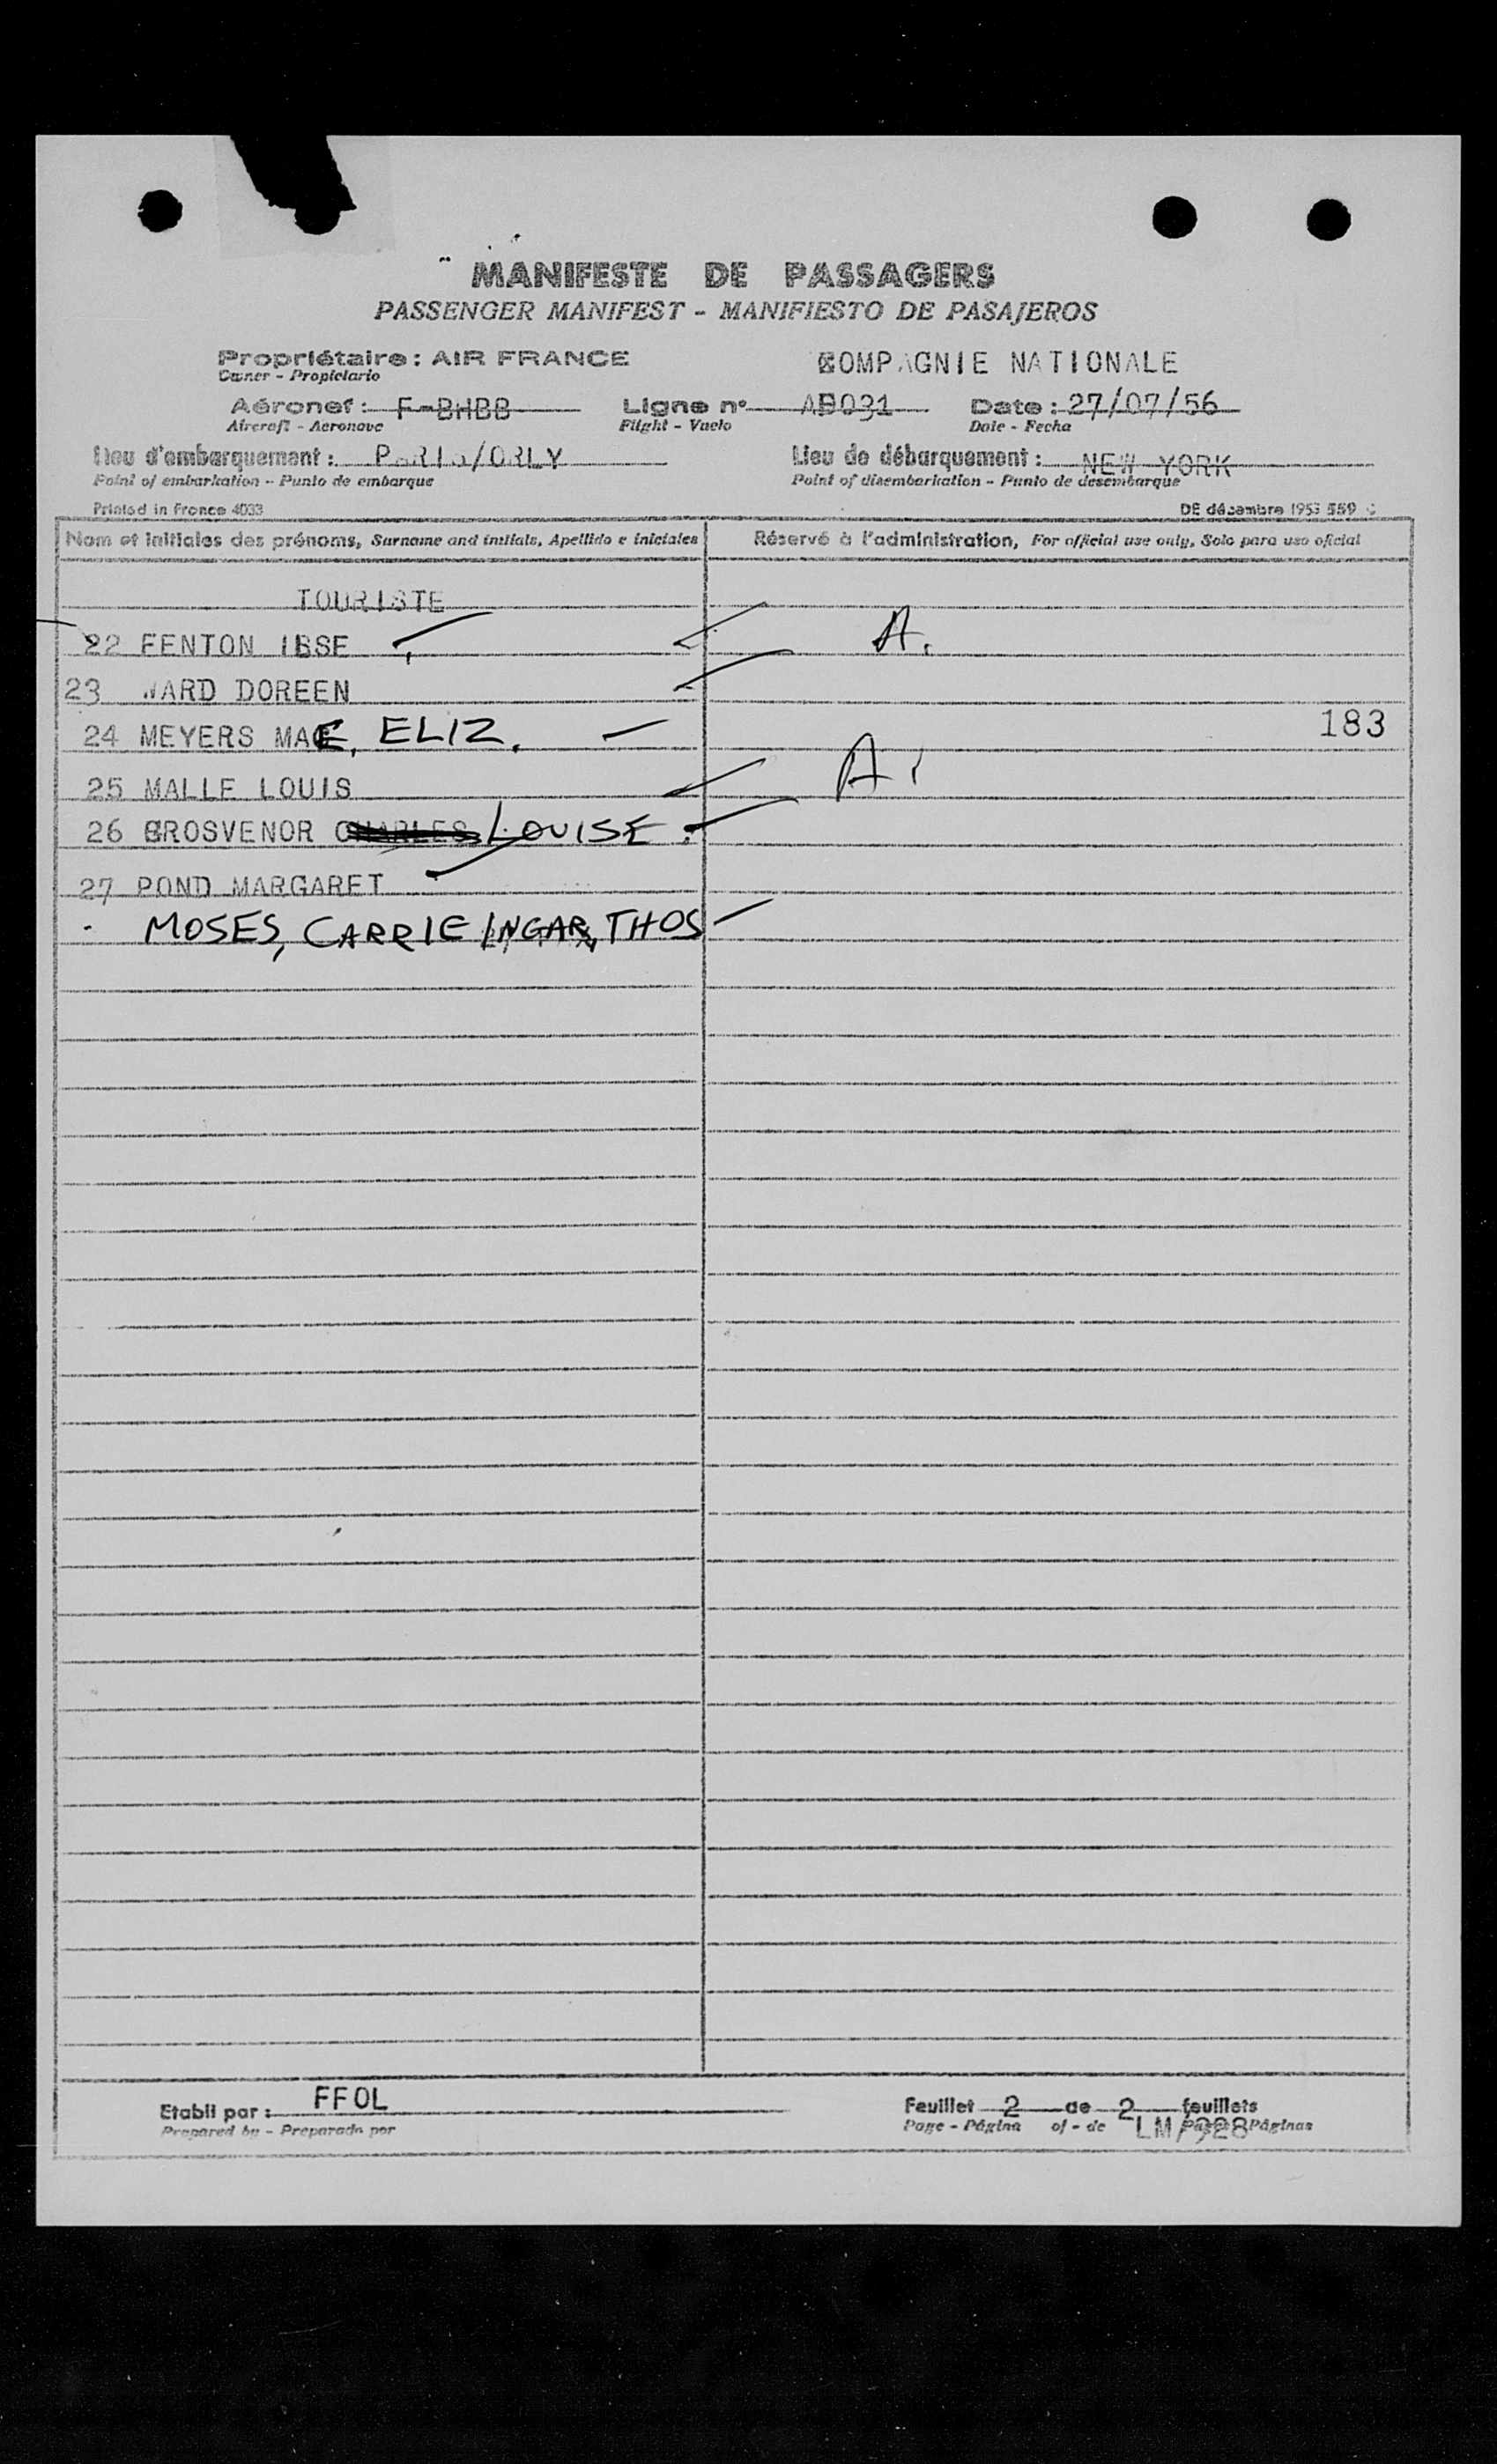 MANIFESTE DE PASSAGERS
PASSENGER MANIFEST - MANIFIESTO DE PASAJEROS
Propriétaire : AIR FRANCE COMPAGNIE NATIONALE
Owner - Propietario
Aéronef : F-BHBB Ligne n° 031 Date : 27/07/56
Aircraft - Aeronave Flight - Vuelo Date - Fecha
Lieu d'embarquement : PARIS/ORLY Lieu de débarquement : NEW YORK
Point of embarkation - Punto de embarque Point of disembarkation - Punto de desembarque
Printed in France 4033 DE décembre 1953 559
Nom et initiales des prénoms, Surname and initials, Apellido e iniciales Réservé à l'administration, For official use only, Solo para uso oficial
TOURISTE
22 FENTON ILSE A.
23 WARD DOREEN
24 MEYERS MAE, ELIZ. 183
25 MALLE LOUIS A.
26 GROSVENOR CHARLES LOUISE
27 POND MARGARET
MOSES, CARRIE INGAR, THOS
Etabli par : FFOL Feuillet 2 de 2 feuillets
Prepared by - Preparado por Page - Página of - de Pages Páginas